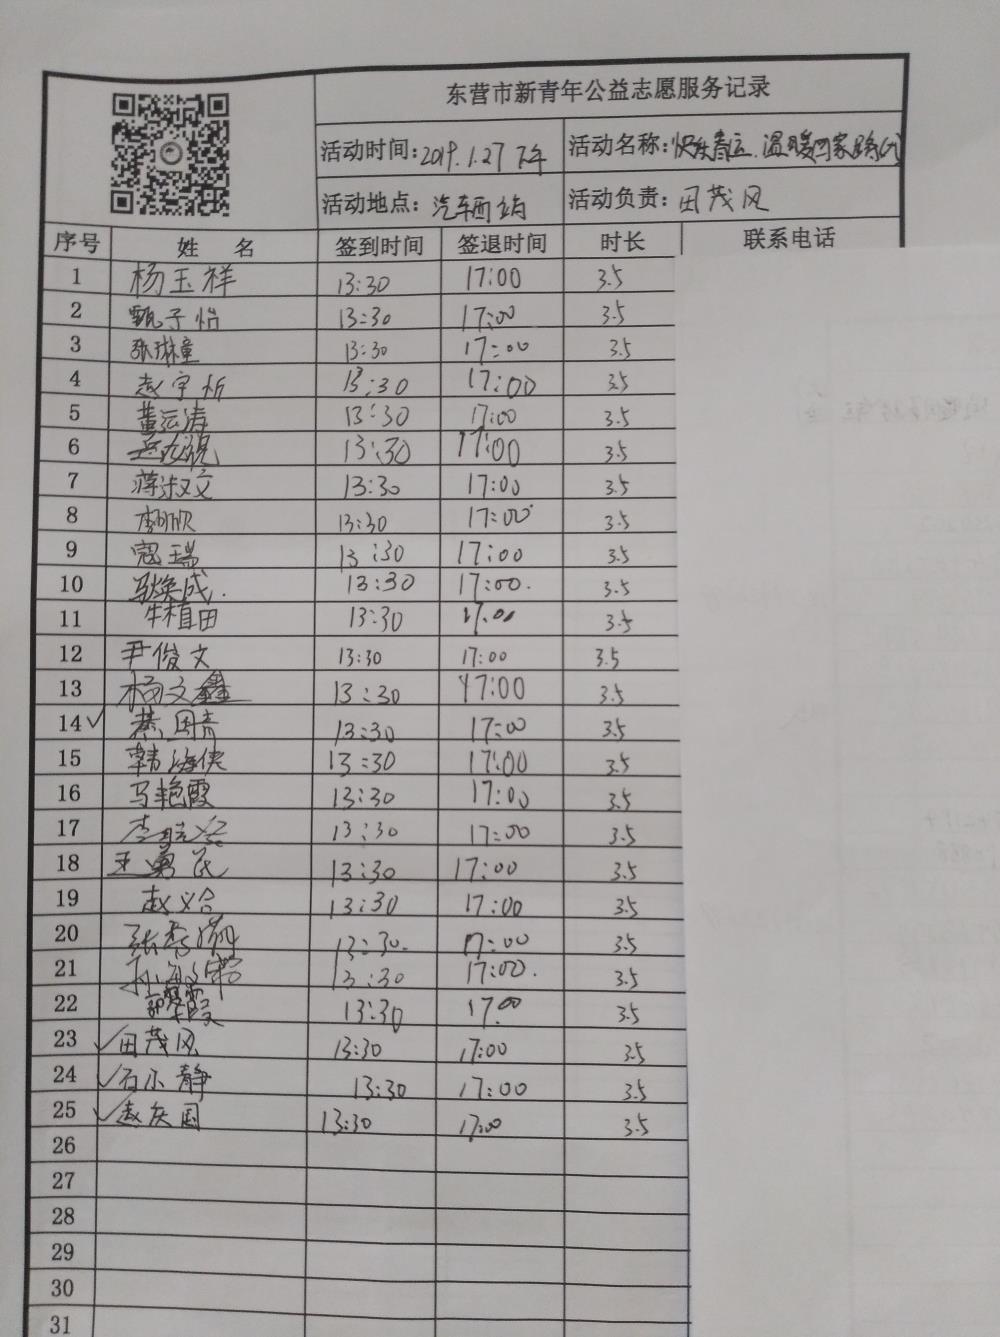 东营市新青年公益志愿服务记录
活动时间:2019.1.27 下午 活动名称:快乐春运.温暖回家路
活动地点:汽车西站 活动负责:田茂风
序号 姓名 签到时间 签退时间 时长 联系电话
1 杨玉祥 13:30 17:00 3.5
2 甄子怡 13:30 17:00 3.5
3 张琳童 13:30 17:00 3.5
4 赵宇忻 13:30 17:00 3.5
5 董运涛 13:30 17:00 3.5
6 13:30 17:00 3.5
7 蒋淑文 13:30 17:00 3.5
8 李欣 13:30 17:00 3.5
9 寇瑞 13:30 17:00 3.5
10 马焕成. 13:30 17:00. 3.5
11 牛植田 13:30 17.00 3.5
12 尹俊文 13:30 17:00 3.5
13 杨文鑫 13:30 17:00 3.5
14 ✓ 綦国青 13:30 17:00 3.5
15 韩海侠 13:30 17:00 3.5
16 马艳霞 13:30 17:00 3.5
17 李 13:30 17:00 3.5
18 王勇民 13:30 17:00 3.5
19 赵义合 13:30 17:00 3.5
20 张秀娟 13:30. 17:00 3.5
21 13:30 17:00. 3.5
22 13:30 17.00 3.5
23 ✓田茂风 13:30 17:00 3.5
24 ✓石小静 13:30 17:00 3.5
25 ✓赵庆国 13:30 17:00 3.5
26
27
28
29
30
31